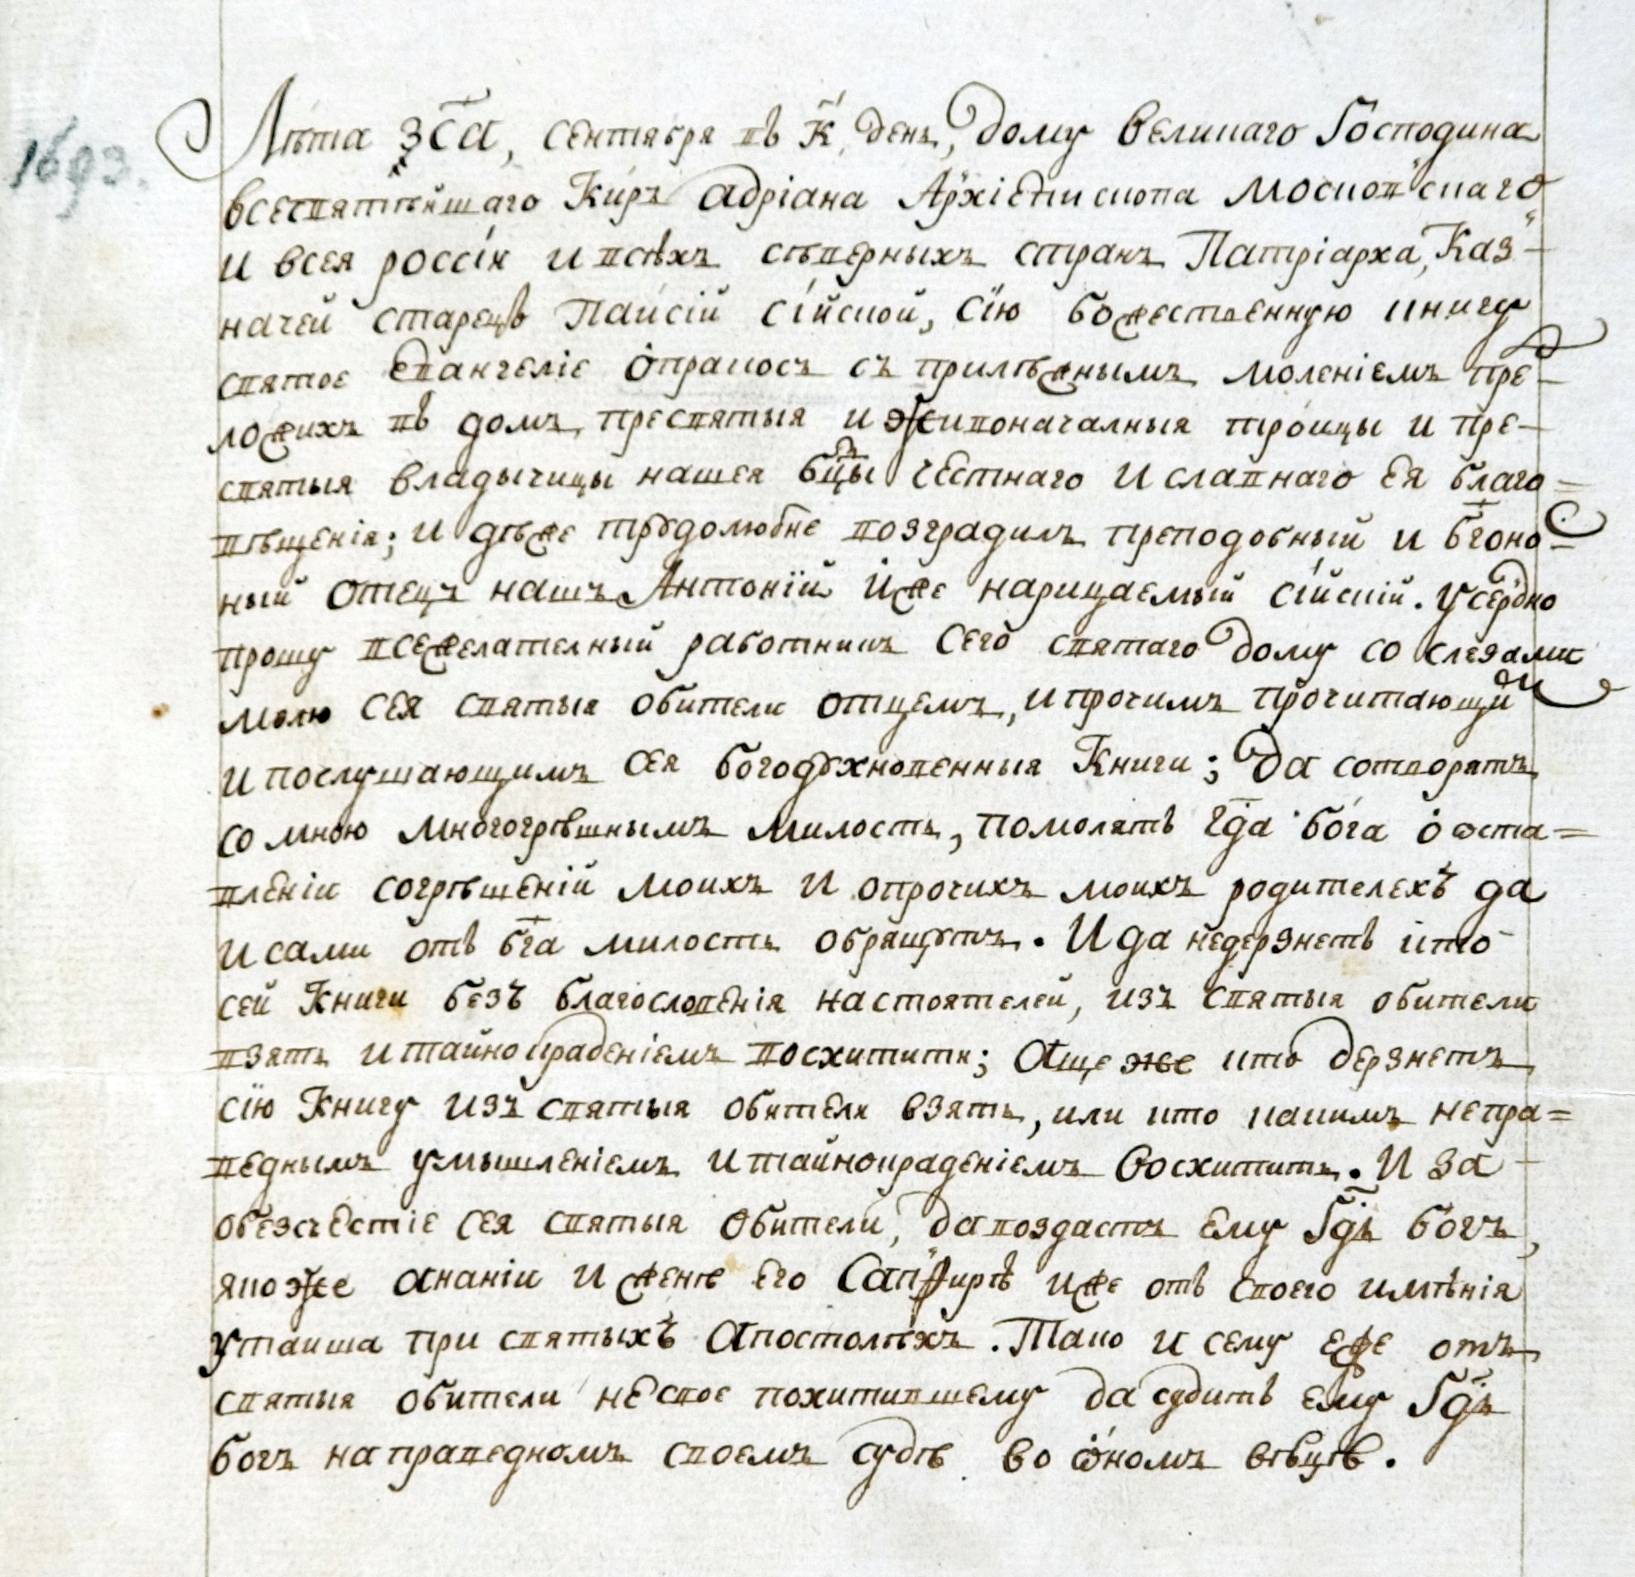 1693.
Лѣта ҂зса, сентября въ к҃ день, дому великаго Господина
всесвятѣйшаго Кѵръ адріана Архіепископа московскаго
и всея россіи и всѣхъ сѣверныхъ странъ Патріарха, Каз-
начей старецъ Паисій сійской, сїю божественную книгу
святое Евангеліе опракосъ съ прилѣжнымъ моленіемъ пре-
ложихъ въ домъ пресвятыя и живоначалныя троицы и пре-
святыя владычицы нашея бцды честнаго и славнаго ея благо=
вѣщенія; и дѣже трудолюбне возградилъ преподобный и бг҃оно=
ный отецъ нашъ Антонїй иже нарицаемый сійскій. усердно
прошу вседжелателный работникъ сего святаго дому со слезами
молю сея святыя обители отцемъ, и прочимъ прочитающим
и послушающимъ сея богодухновенныя Книги; да сотворятъ
со мною многогрѣшнымъ милость, помолятъ гд҃а бо́га о ѡста=
вленіи согрѣшеній моихъ и опрочихъ моихъ родителехъ да
и сами отъ бг҃а милость обрящутъ. И да недерзнетъ кто
сей Книги безъ благословенія настоятелей, изъ святыя обители
взять и тайнокраденіемъ восхитити; Аще же кто дерзнетъ
сїю Книгу изъ святыя обители взять, или кто какимъ непра=
веднымъ умышленіемъ и тайнокраденіемъ восхитить. И за
обезчестіе сея святыя обители, да воздастъ ему Гд҃ь богъ,
якоже ананіи и женѣ его Сапфирѣ иже отъ своего имѣнія
утаиша при святыхъ апостолѣхъ. Тако и сему еже отъ
святыя обители не свое похитившему да судитъ ему Гд҃ь
богъ на праведномъ своемъ судѣ во ѡномъ вѣцѣ.